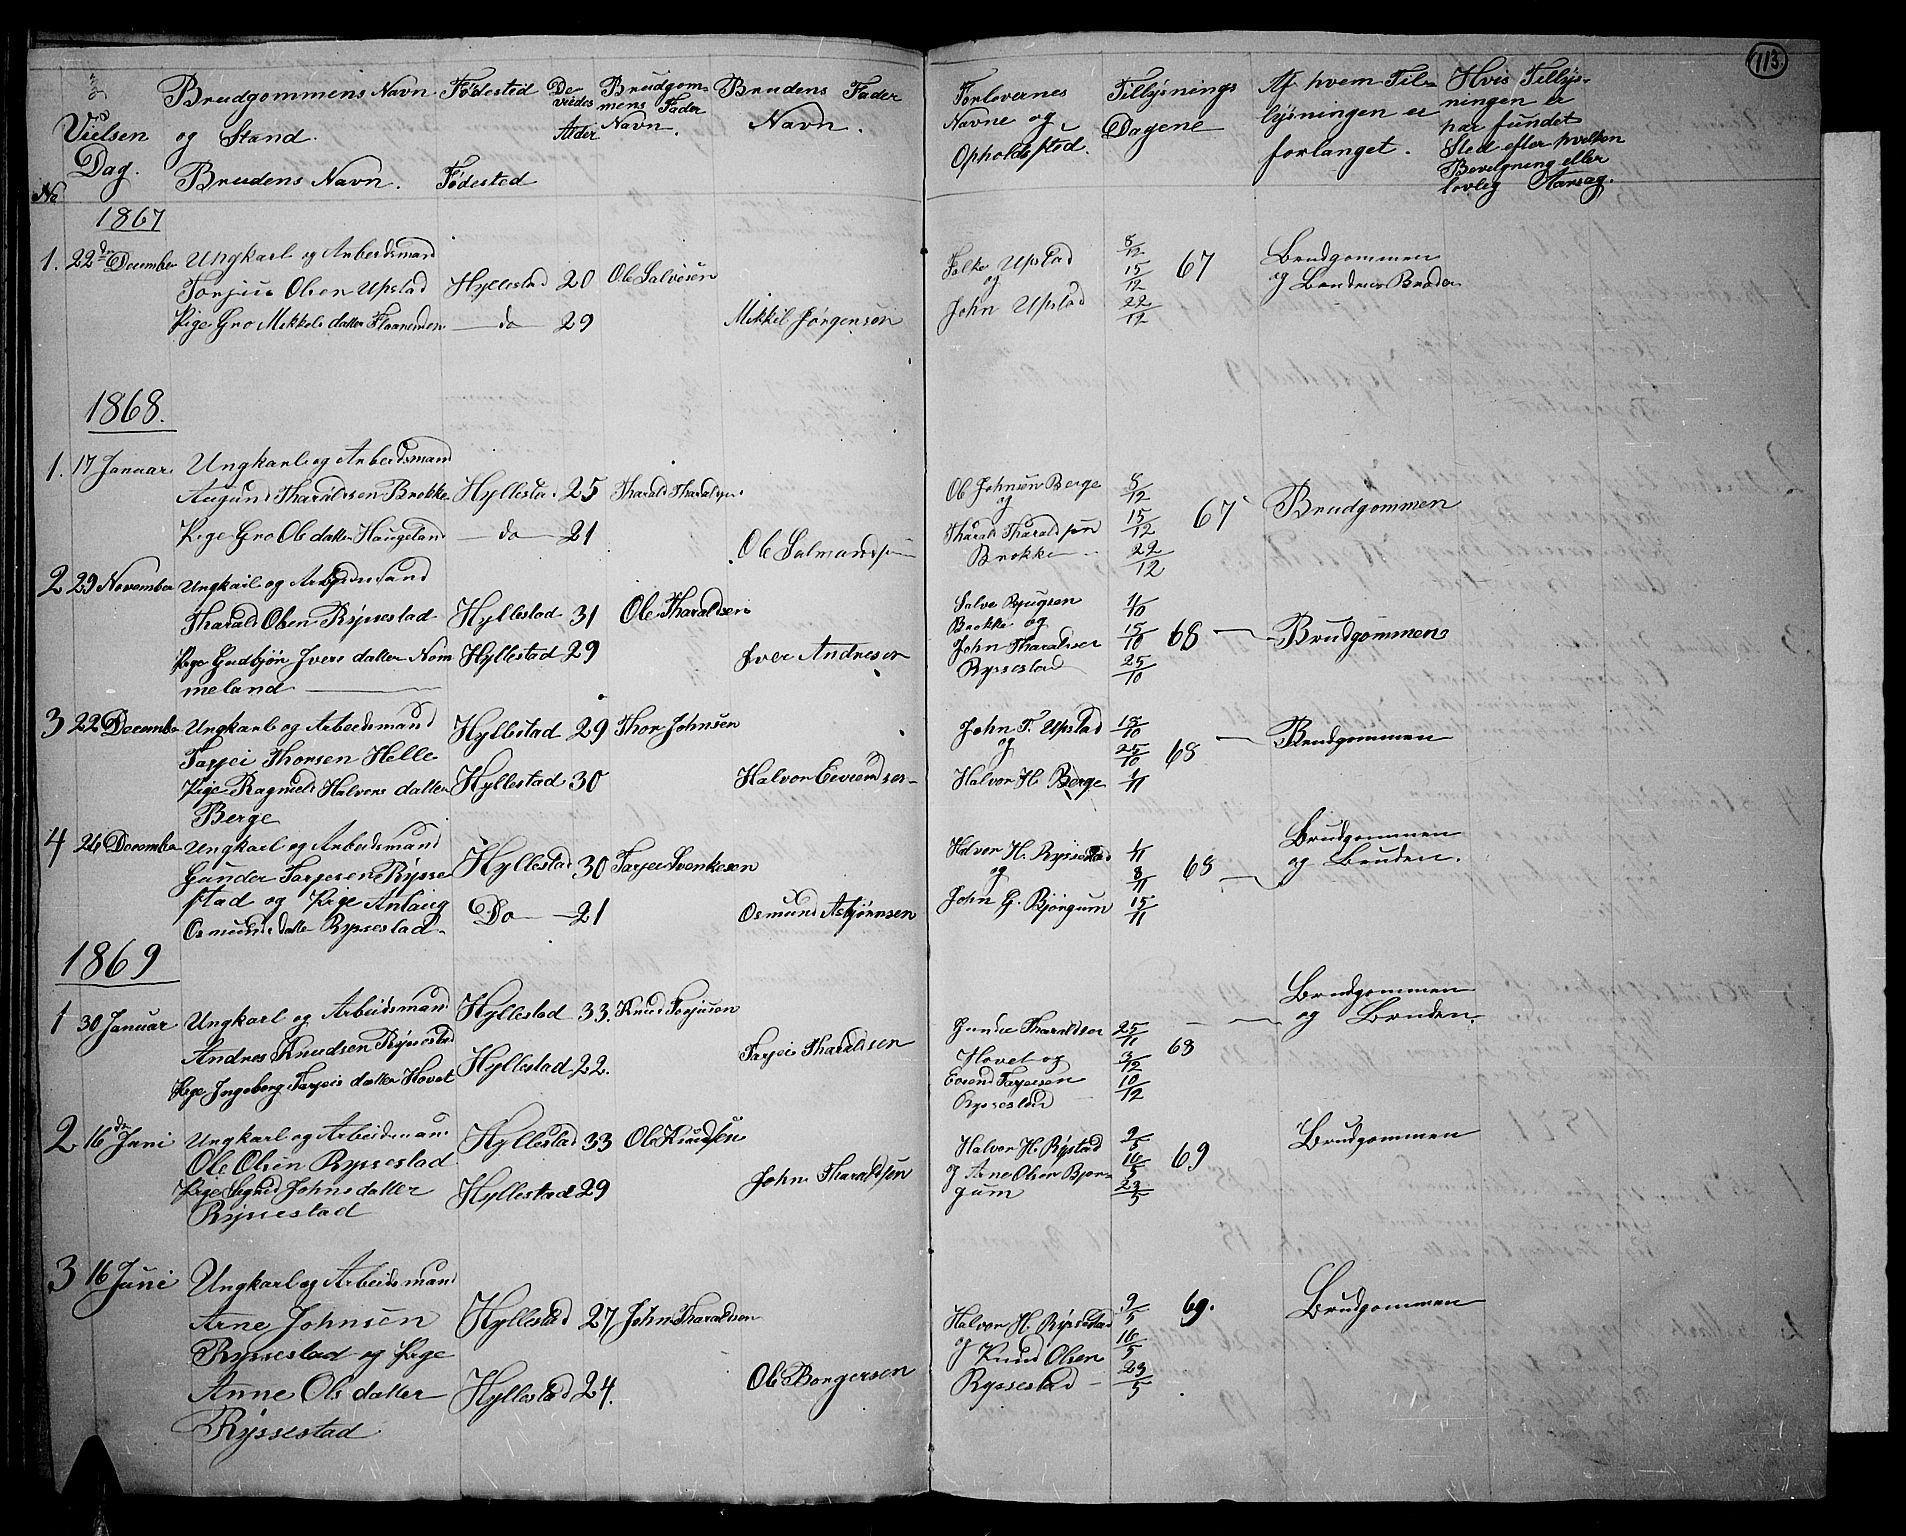 113.
Vielsen Dag. No
Brudgommens Navn og Stand.
Brudens Navn.
Fødested
Fødested
De viedes Alder
Brudgommens Fader Navn.
Brudens Fader Navn.
Forlovernes Navne og Opholdssted.
Tillysnings Dagene
Af hvem Tillysningen er forlanget.
Hvis Tillysningen er har fundet Sted efter hvelken Bevilgning eller lovlig Aarsag.
1867
1. 22de December Ungkarl og Arbeidsmand
Torjus Olsen Upstad Hyllestad 20 Ole Salvesen
Pige Gro Mikkels datter do 29 Mikkel Jørgensen
Folke Upstad og John Upstad 8/12 15/12 22/12 67 Brudgommen og Brudens Broder
1868.
1. 17 Januar Ungkarl og Arbeidsmand
Augund Tharaldsen Brokke Hyllestad 25 Tharald Tharaldsen
Pige Gro Ole datter Haugeland do 21 Ole Salmundsen
Ole Johnsen Berge og Tharald Tharaldsen Brokke 8/12 15/12 22/12 67 Brudgommen
2 29 November Ungkarl og Arbeidsmand
Tharald Olsen Ryssestad Hyllestad 31 Ole Tharaldsen
Pige Gudbjør Ivers datter Nom Hyllestad 29 Iver Andresen
meland
Salve Brokke og John Tharaldsen Ryssestad 11/10 15/10 25/10 68 Brudgommen
3 22 December Ungkarl og Arbeidsmand Hyllestad 29 Thor Johnsen
Tarjei Thorsen Helle
Pige Ragnild Halvors datter Hyllestad 30 Halvor Eivindsen
Berge
John T. Upstad og Halvor H. Berge 18/10 25/10 1/11 68 Brudgommen
4 26 December Ungkarl og Arbeidsmand Hyllestad 30 Tarjei Svenkesen
Gunder Tarjesen Rysse
stad og Pige Anlaug Do 21 Osmund Asbjørnsen
Osmunds datter Ryssestad
Halvor H. Ryssestad og John G. Bjørgum 1/11 8/11 15/11 68 Brudgommen og Bruden.
1869
1 30 Januar Ungkarl og Arbeidsmand Hyllestad 33. Knud Torjusen
Andres Knudsen Ryssestad
Pige Ingeborg Tarjeis datter Hovet Hyllestad 22. Tarjei Tharaldsen
Gunder Tharaldsen Hovet og Eivend Tarjeisen Ryssestad 25/11 3/12 10/12 68 Brudgommen og Bruden.
2 16de Juni Ungkarl og Arbeidsmand Hyllestad 33 Ole Knudsen
Ole Olsen Ryssestad
Pige Sigrid Johns datter Hyllestad 29 John Tharaldsen
Ryssestad
Halvor H. Rystad og Arne Olsen Bjorgum 2/5 16/5 23/5 69 Brudgommen
3 16 Juni Ungkarl og Arbeidsmand
Arne Johnsen Hyllestad 27 John Tharaldsen
Ryssestad og Pige
Anne Ols datter Hyllestad 24. Ole Borgersen
Ryssestad
Halvor H. Ryssestad og Knud Olsen Ryssestad 9/5 16/5 23/5 69. Brudgommen